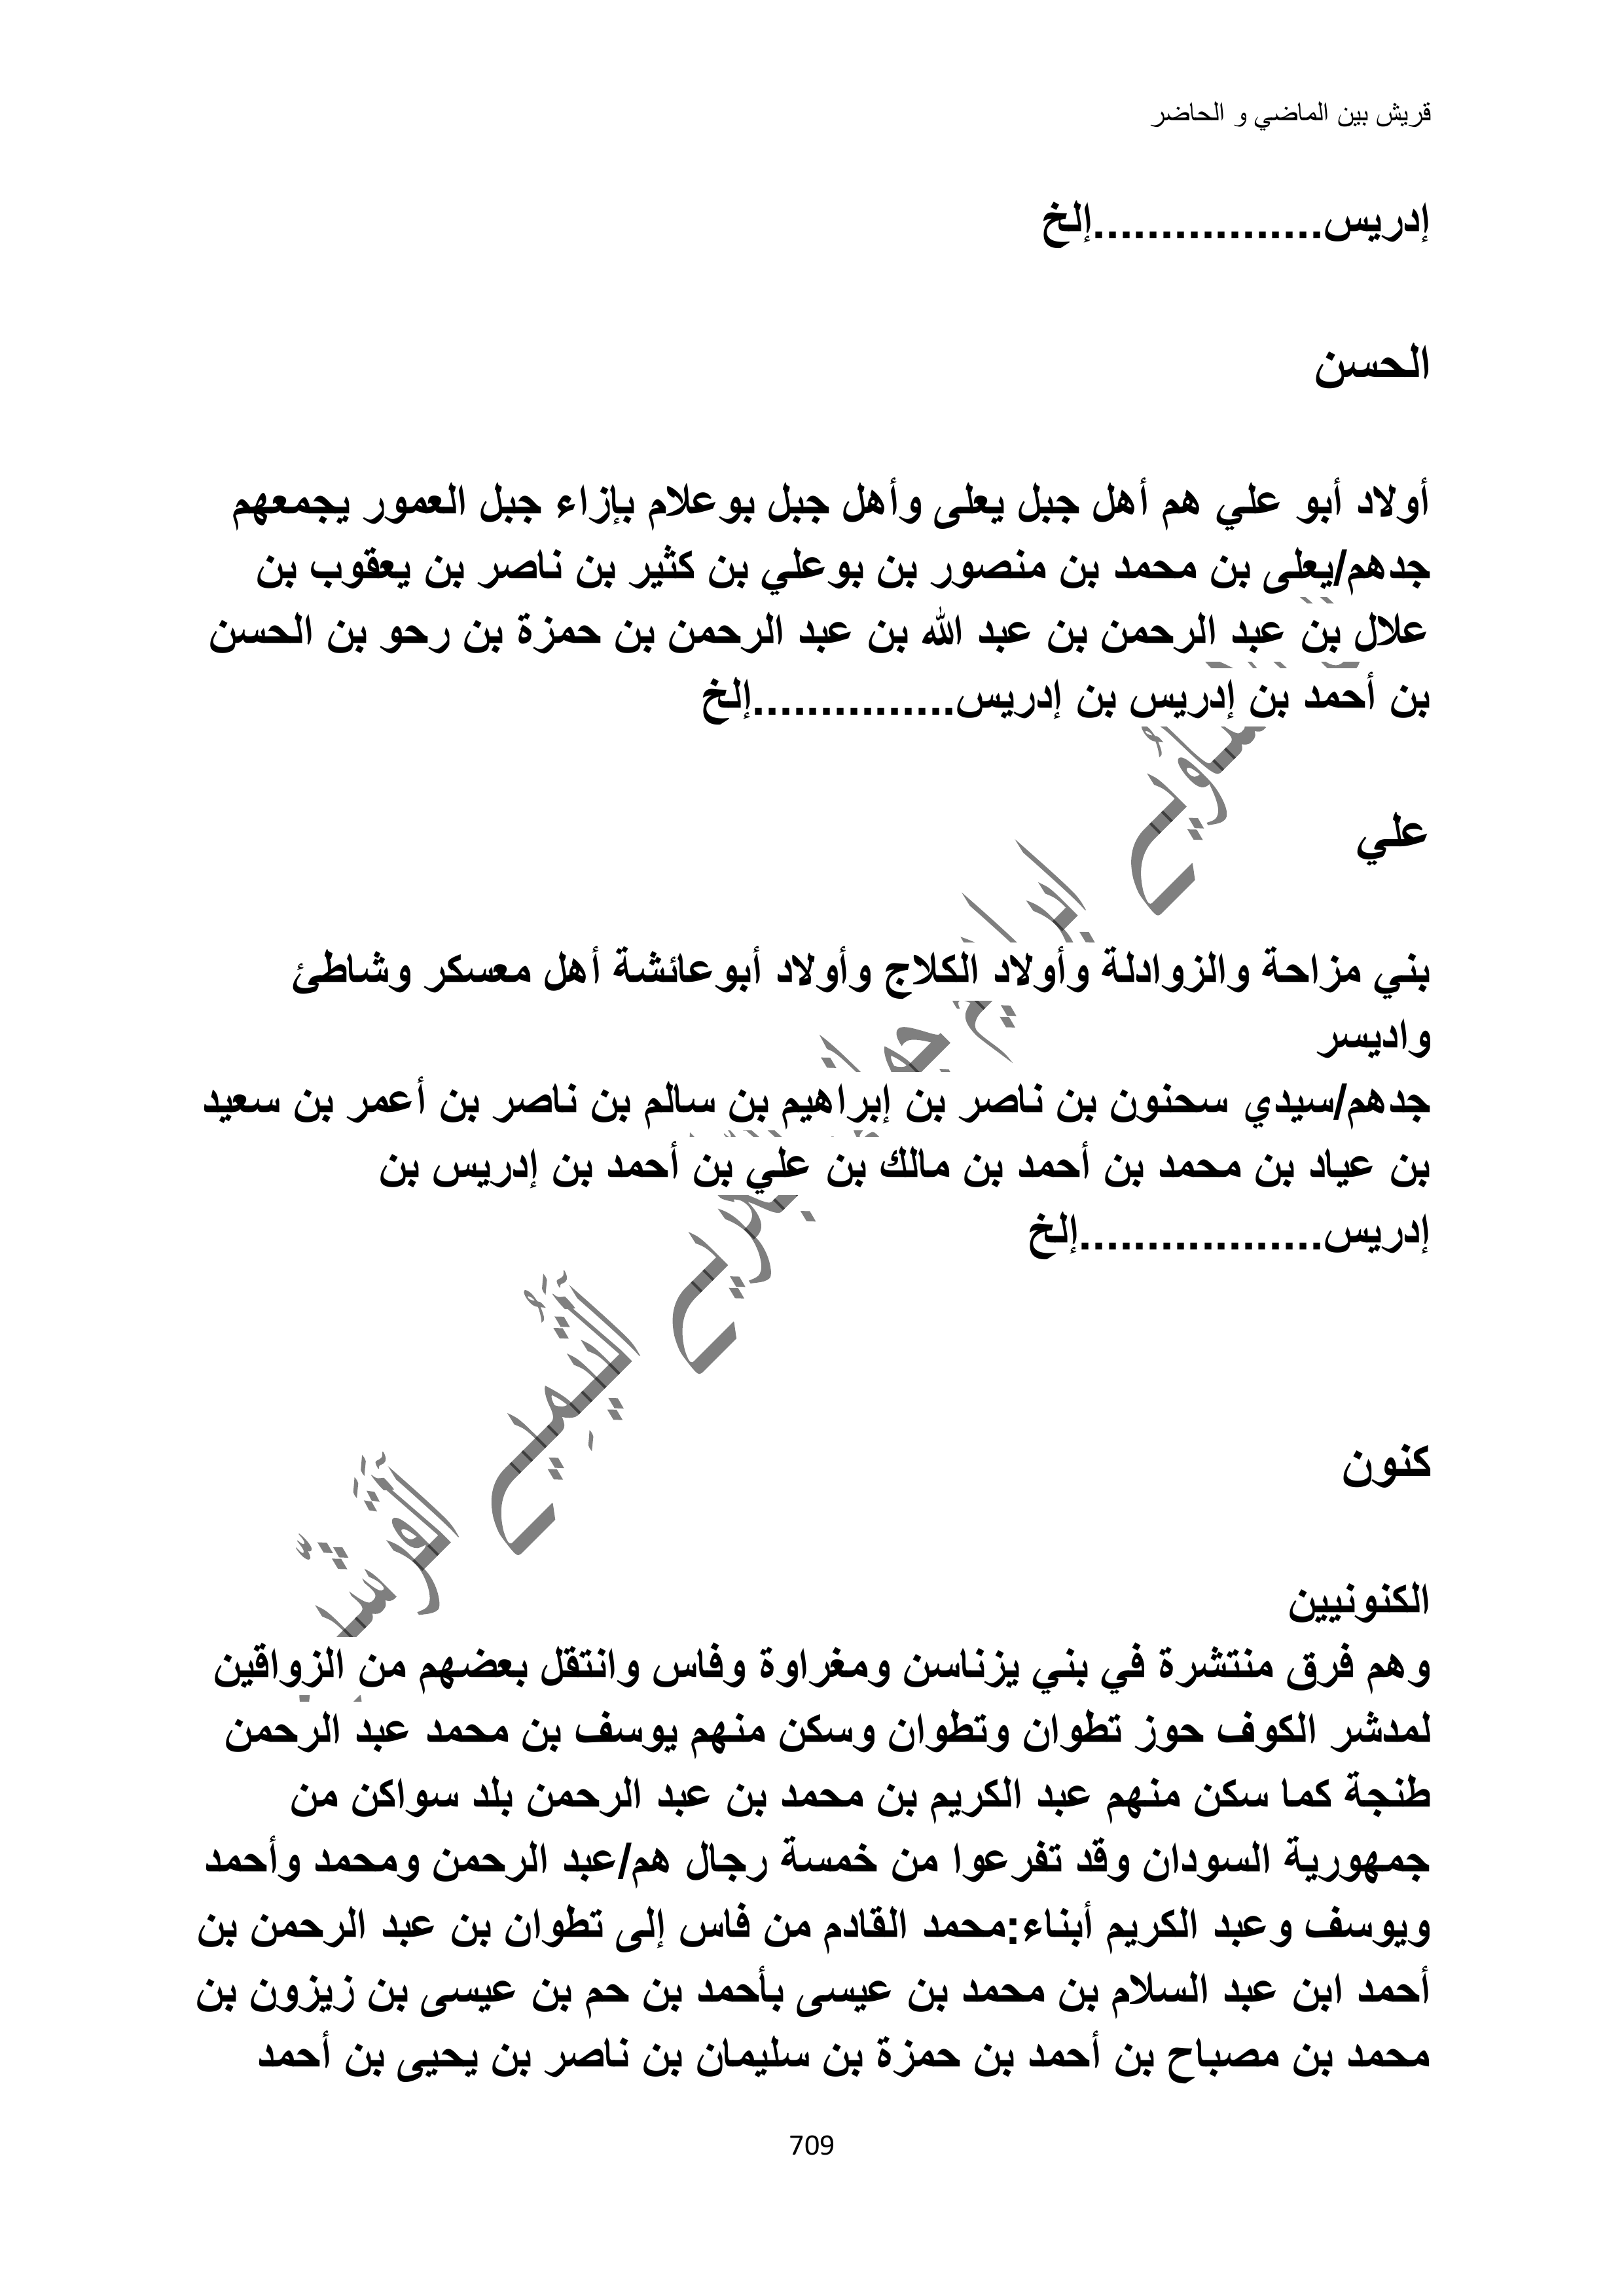 قريش بين الماضي و الحاضر
إدريس.................إلخ
الحسن
أولاد أبو علي هم أهل جبل يعلى وأهل جبل بوعلام بإزاء جبل العمور يجمعهم
جدهم/يعلى بن محمد بن منصور بن بوعلي بن كثير بن ناصر بن يعقوب بن
علال بن عبد الرحمن بن عبد الله بن عبد الرحمن بن حمزة بن رحو بن الحسن
بن أحمد بن إدريس بن إدريس...............إلخ
علي
بني مزاحة والزوادلة وأولاد الكلاج وأولاد أبوعائشة أهل معسكر وشاطئ
واديسر
جدهم/سيدي سحنون بن ناصر بن إبراهيم بن سالم بن ناصر بن أعمر بن سعيد
بن عياد بن محمد بن أحمد بن مالك بن علي بن أحمد بن إدريس بن
إدريس..................إلخ
كنون
الكنونيين
وهم فرق منتشرة في بني يزناسن ومغراوة وفاس وانتقل بعضهم من الزواقين
لمدشر الكوف حوز تطوان وتطوان وسكن منهم يوسف بن محمد عبد الرحمن
طنجة كما سكن منهم عبد الكريم بن محمد بن عبد الرحمن بلد سواكن من
جمهورية السودان وقد تفرعوا من خمسة رجال هم/عبد الرحمن ومحمد وأحمد
ويوسف وعبد الكريم أبناء:محمد القادم من فاس إلى تطوان بن عبد الرحمن بن
أحمد ابن عبد السلام بن محمد بن عيسى بأحمد بن حم بن عيسى بن زيزون بن
محمد بن مصباح بن أحمد بن حمزة بن سليمان بن ناصر بن يحيى بن أحمد
709